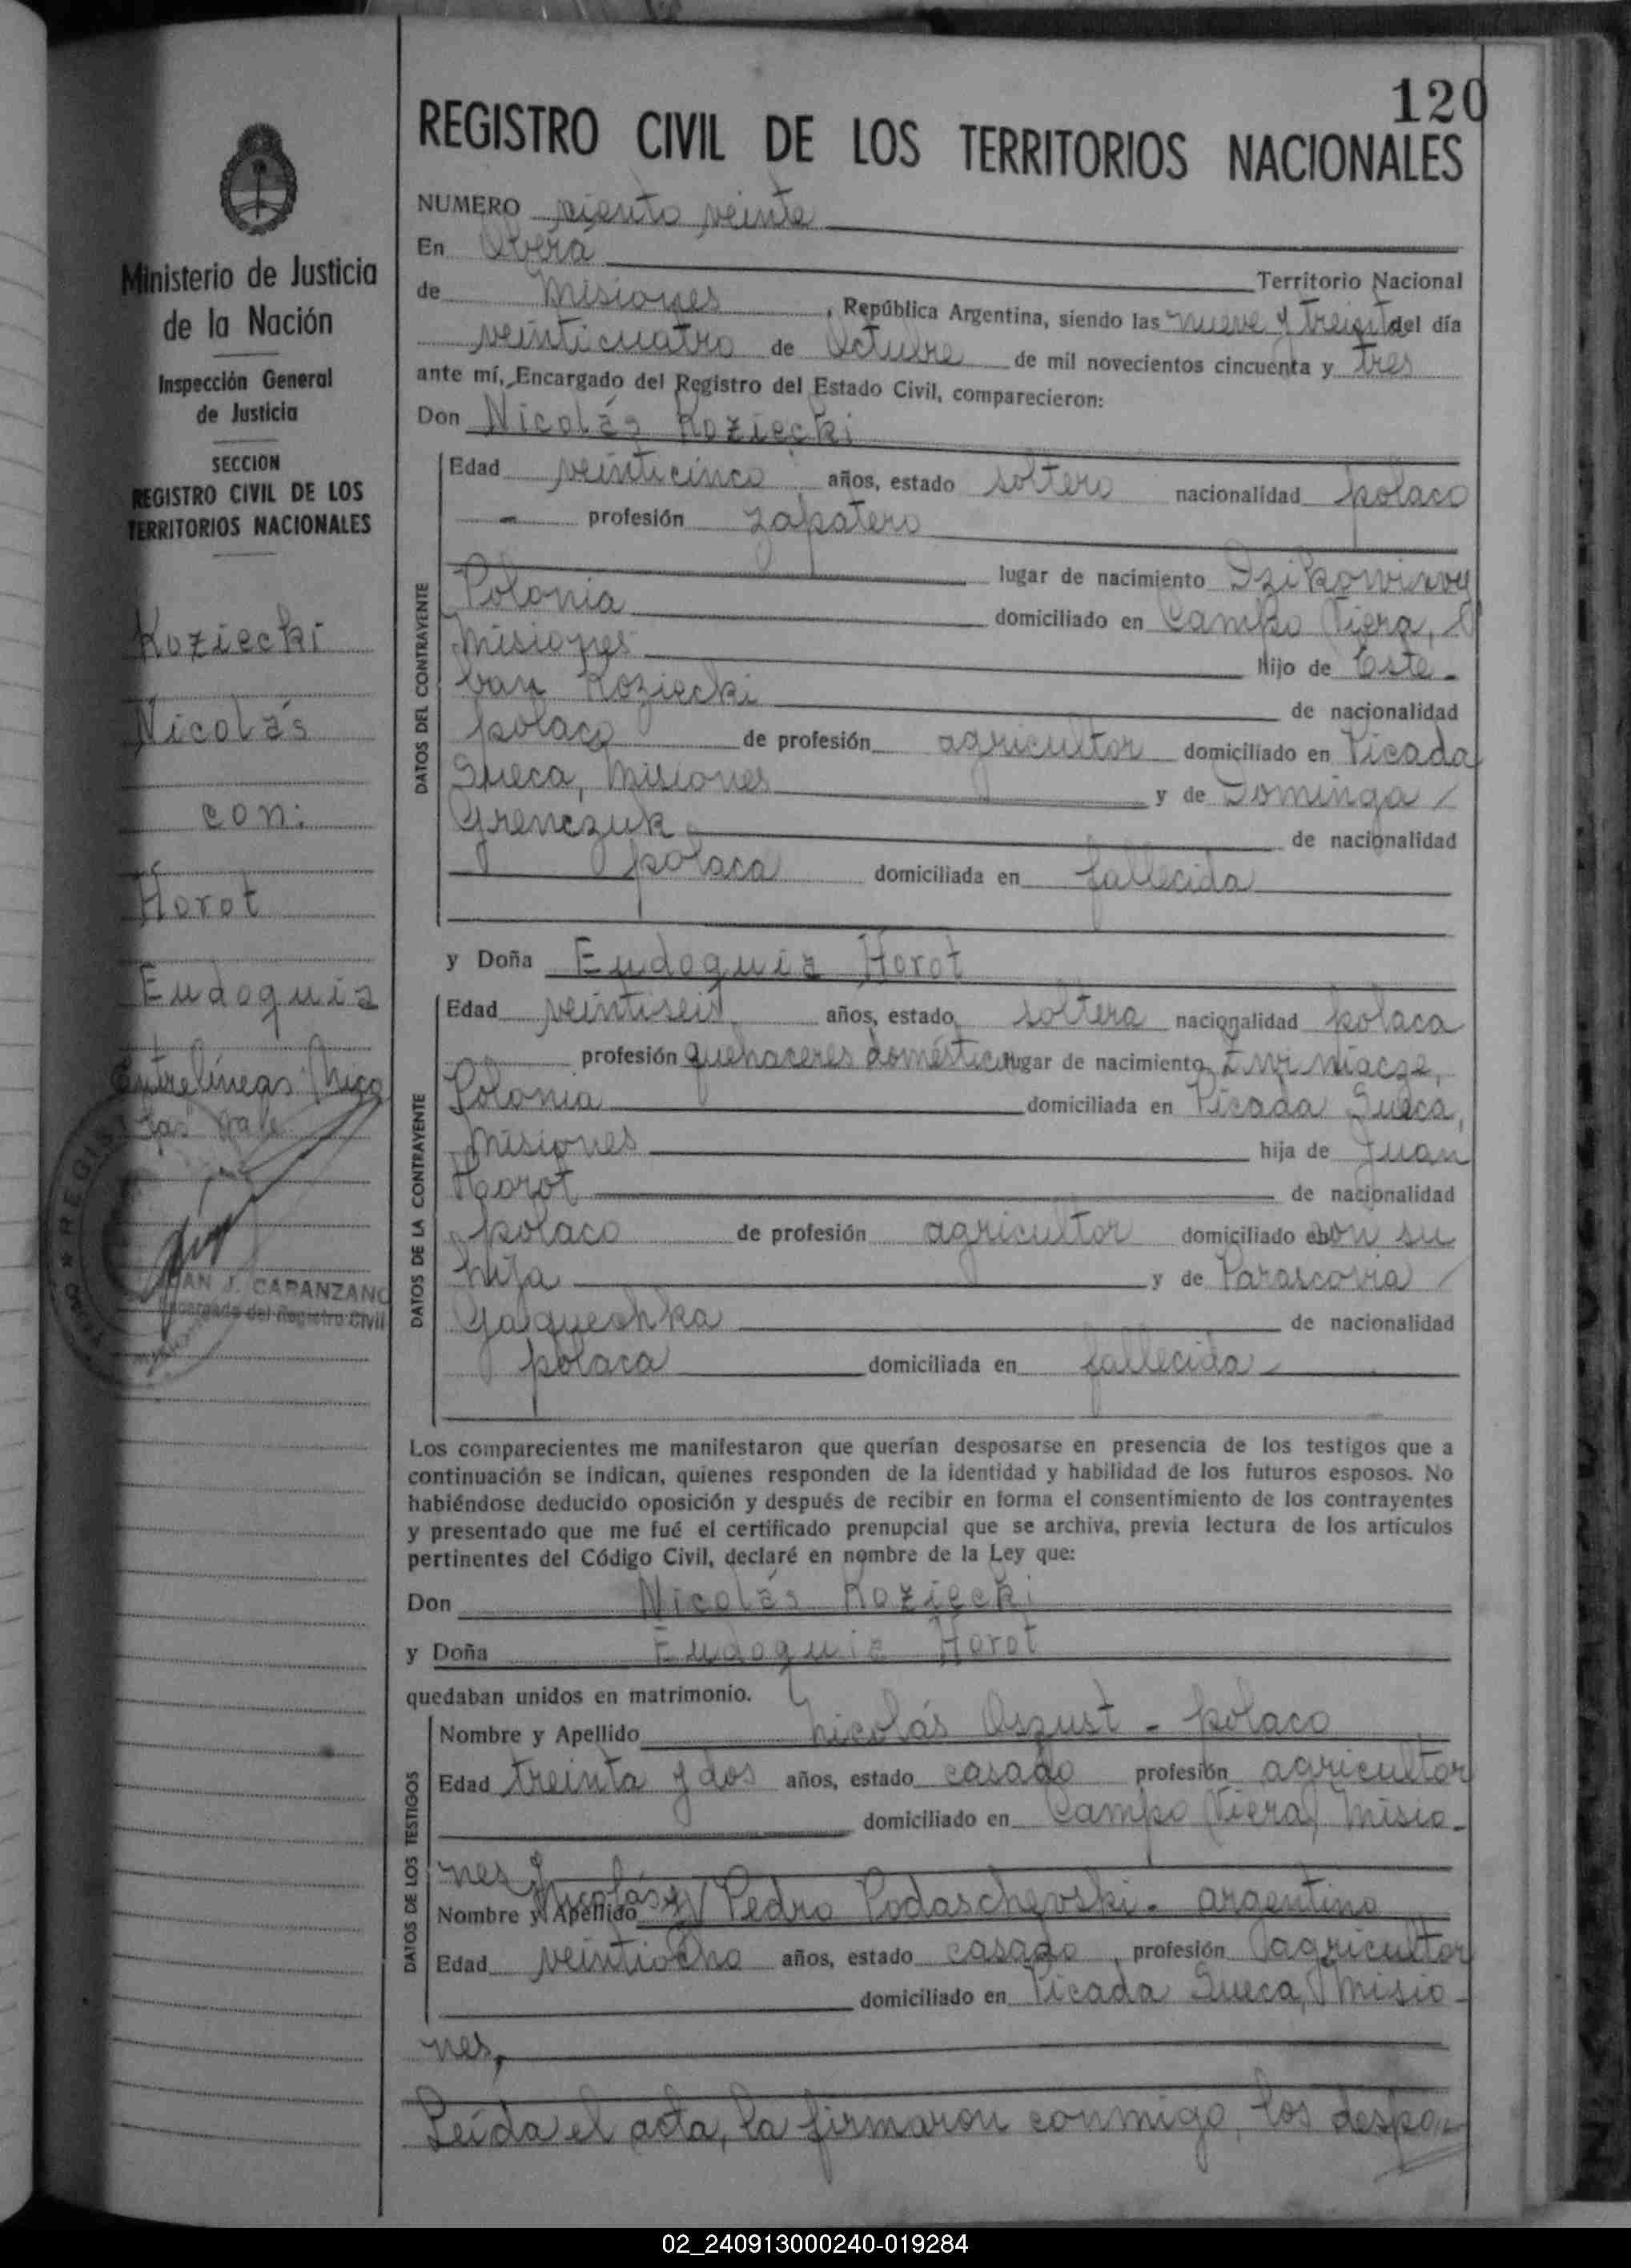 120
REGISTRO CIVIL DE LOS TERRITORIOS NACIONALES
Ministerio de Justicia
de la Nación
Inspección General
de Justicia
SECCION
REGISTRO CIVIL DE LOS
TERRITORIOS NACIONALES
Koziecki
Nicolás
con:
Horot
Eudoquia
Entrelíneas: Nico
las vale
JUAN J. CAPANZANO
Encargado del Registro Civil
NUMERO ciento veinte
En Oberá Territorio Nacional
de Misiones, República Argentina, siendo las nueve y treinta del día
veinticuatro de Octubre de mil novecientos cincuenta y tres
ante mí, Encargado del Registro del Estado Civil, comparecieron:
Don Nicolás Koziecki
DATOS DEL CONTRAYENTE
Edad veinticinco años, estado soltero nacionalidad polaco
- profesión zapatero
lugar de nacimiento
Polonia domiciliado en Campo Viera,
Misiones Hijo de Este-
ban Koziecki de nacionalidad
polaco de profesión agricultor domiciliado en Picada
Sueca, Misiones y de Dominga
Grenczuk de nacionalidad
polaca domiciliada en fallecida
y Doña Eudoquia Horot
DATOS DE LA CONTRAYENTE
Edad veintiseis años, estado soltera nacionalidad polaca
profesión quehaceres domésticos lugar de nacimiento
Polonia domiciliada en Picada Sueca,
Misiones hija de Juan
Horot de nacionalidad
polaco de profesión agricultor domiciliado en con su
hija y de Parascovia
de nacionalidad
polaca domiciliada en fallecida
Los comparecientes me manifestaron que querían desposarse en presencia de los testigos que a
continuación se indican, quienes responden de la identidad y habilidad de los futuros esposos. No
habiéndose deducido oposición y después de recibir en forma el consentimiento de los contrayentes
y presentado que me fué el certificado prenupcial que se archiva, previa lectura de los artículos
pertinentes del Código Civil, declaré en nombre de la Ley que:
Don Nicolás Koziecki
y Doña Eudoquia Horot
quedaban unidos en matrimonio.
DATOS DE LOS TESTIGOS
Nombre y Apellido Nicolás Oszust - polaco
Edad treinta y dos años, estado casado profesión agricultor
domiciliado en Campo Viera, Misio-
nes y
Nicolás
Nombre y Apellido Pedro Podaschevski - argentino
Edad veintiocho años, estado casado profesión agricultor
domiciliado en Picada Sueca, Misio-
nes,
Leída el acta, la firmaron conmigo, los despo-
02_240913000240-019284